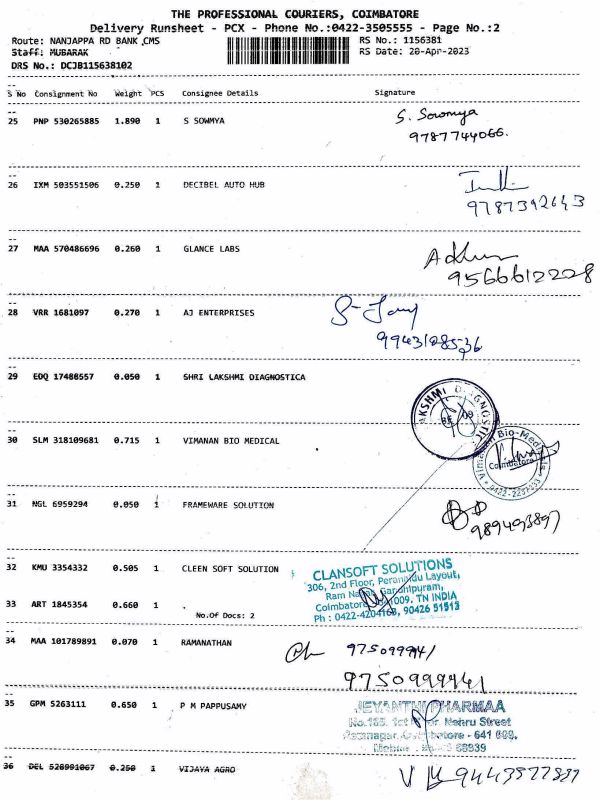 THE PROFESSIONAL COURIERS, COIMBATORE
Delivery Runsheet - PCX - Phone No.:0422-3505555 - Page No.:2
Route: NANJAPPA RD BANK ,CMS RS No.: 1156381
Staff: MUBARAK RS Date: 20-Apr-2023
DRS No.: DCJB115638102
S No Consignment No Weight PCS Consignee Details Signature
25 PNP 530265885 1.890 1 S SOWMYA S. Sowmya
9787744066.
26 IXM 503551506 0.250 1 DECIBEL AUTO HUB
9787392643
27 MAA 570486696 0.260 1 GLANCE LABS
9566612228
28 VRR 1681097 0.270 1 AJ ENTERPRISES
9943108536
29 EDQ 17488557 0.050 1 SHRI LAKSHMI DIAGNOSTICA
30 SLM 318109681 0.715 1 VIMANAN BIO MEDICAL
Coimbatore
31 NGL 6959294 0.050 1 FRAMEWARE SOLUTION
989493897
32 KMU 3354332 0.505 1 CLEEN SOFT SOLUTION
CLANSOFT SOLUTIONS
306, 2nd Floor, Layout,
Ram Nagar, Gandhipuram,
Coimbatore 641009. TN INDIA
Ph : 0422-4204168, 90426 51513
33 ART 1845354 0.660 1
No.Of Docs: 2
34 MAA 101789891 0.070 1 RAMANATHAN
9750999941
35 GPM 5263111 0.650 1 P M PAPPUSAMY
JEYANTHI PHARMAA
Nehru Street
36 DEL 528991067 0.250 1 VIJAYA AGRO